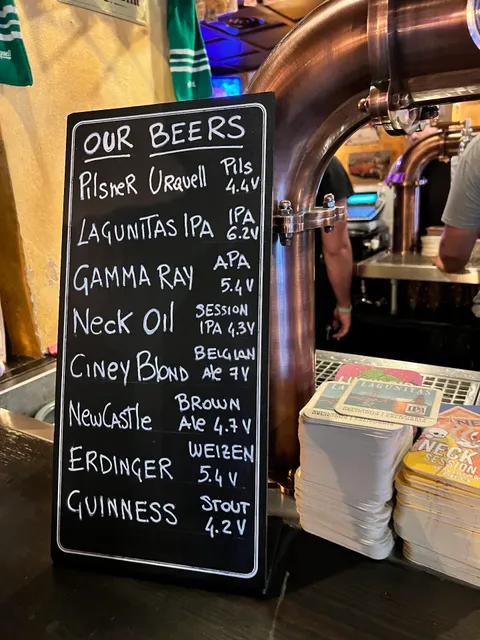 OUR BEERS
Pilsner Urquell Pils
4.4V
LAGUNITAS IPA IPA
6.2V
GAMMA RAY APA
5.4V
Neck Oil SESSION
IPA 4,3V
Ciney Blond BELGIAN
Ale 7V
NewCastle BROWN
Ale 4.7V
ERDINGER WEIZEN
5.4V
GUINNESS STOUT
4.2V
LAGUNITAS
IPA
NECK
SESSION